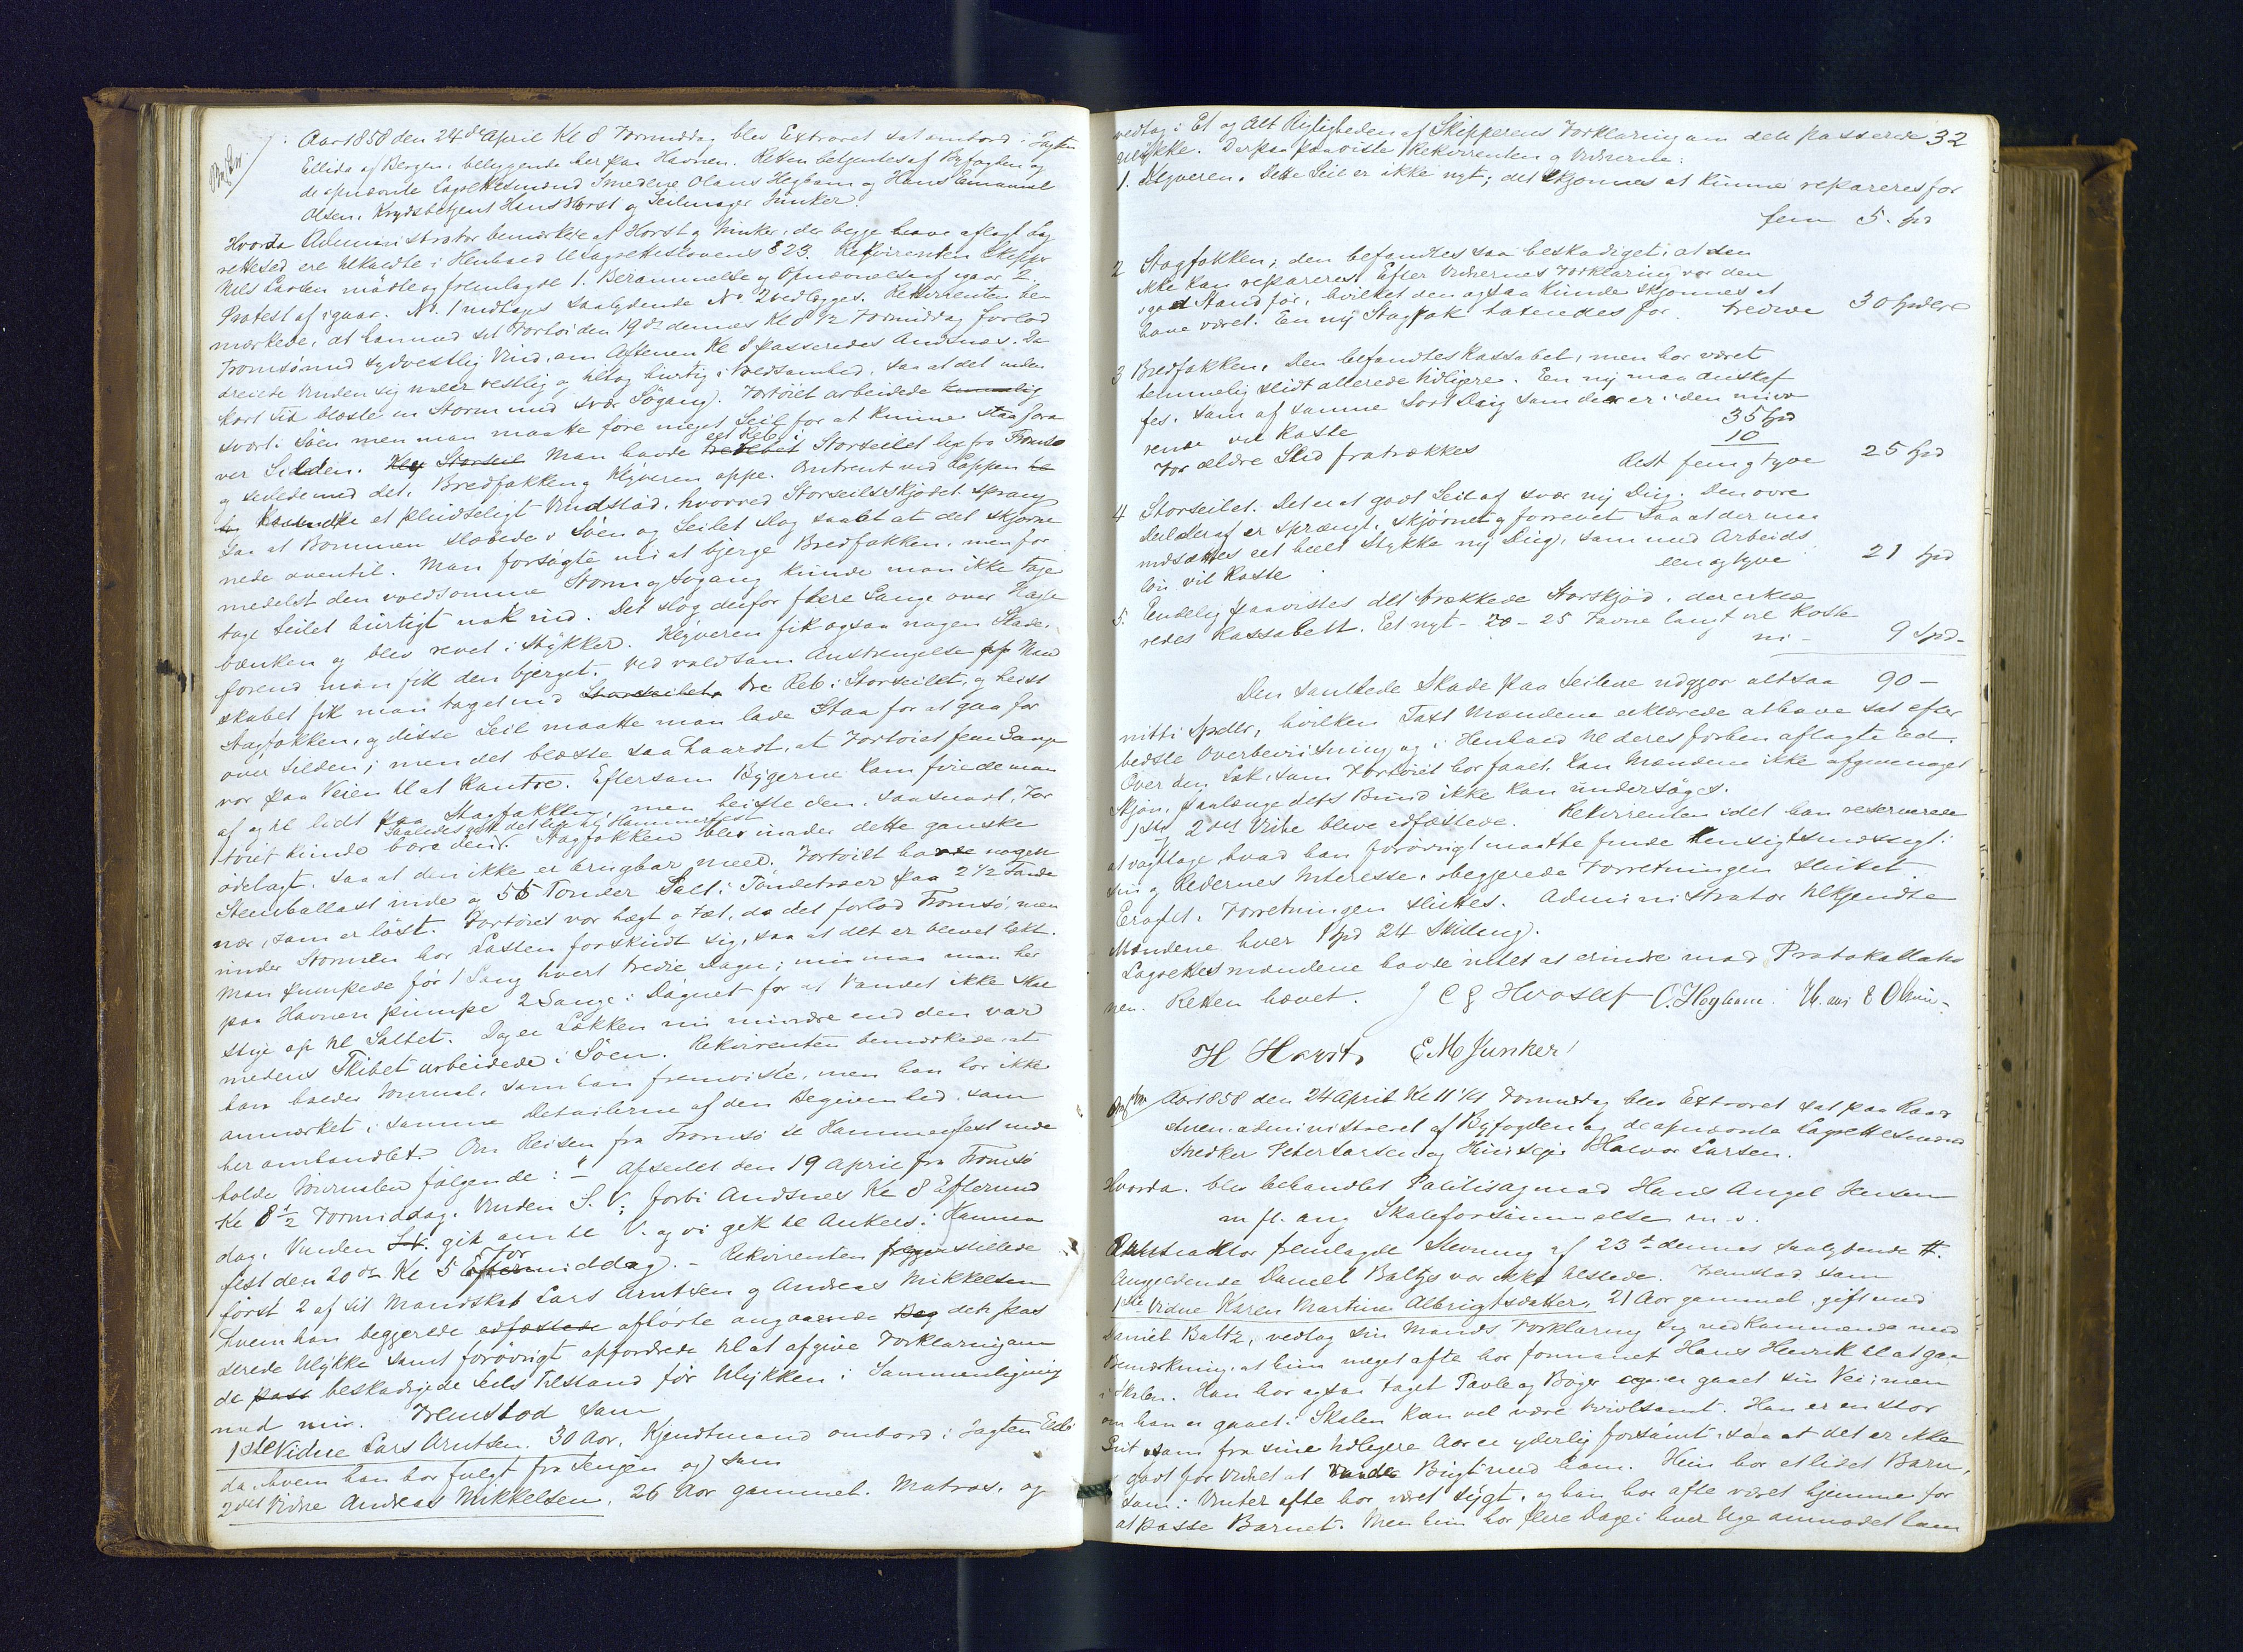 Aar 1858 den 24de April Kl 8 Formiddag blev Extraret sat ombord i Jagten
Ellida af Bergen, beliggende her paa Havnen. Retten betjentes af Byfogden og
de opnævnte Lagrettesmænd Smedene Olaus Hegbom og Hans Emanuel
Olsen, Krydsbetjent Hans Horst og Seilmager Junker.
Hvorda Administrator bemærkede at Horst og Junker, der begge have aflagt Lag
rettesed ere tilkaldte i Henhold til Lagrettelovens § 23. Rekvirenten Skipper
Nils Larsen mødte og fremlagde 1. Berammelse og Opnævnelse af igaar 2.
Protest af igaar. No. 1 indtages saalydende No 2 vedlægges. Rekvirenten be
mærkede, at han med sit Fartøi den 19de dennes Kl 8 1/2 Formiddag forlod
Tromsø med sydvestlig Vind, om Aftenen Kl 8 passeredes Andsnæs. Da
dreiede Vinden sig meer vestlig og tiltog hurtig i Voldsomhed, saa at det inden
kort Tid blæste en Storm med svær Søgang. Fartøiet arbeidede temmelig
svært i Søen men man maatte føre meget Seil for at kunne staa fore
ver Silden. Storseil Man havde eet Reb i Storseilet lige fra Tromsø
og seilede med det, Bredfokken og Klyveren oppe. Omtrent ved Loppen
et pludseligt Vindstød, hvorved Storseilsskjødet sprang
saa at Bommen slæbede i Søen og Seilet slog saalet at det skjørne
nede oventil. Man forsøgte nu at bjerge Bredfokken, men for
medelst den voldsomme Storm og Søgang kunde man ikke tage
tage Seilet hurtigt nok ind. Det slog derfor flere Gange over Hage
bænken og blev revet i Stykker. Klyveren fik ogsaa nogen Skade,
førend man fik den bjerget. Ved voldsom Anstrengelse af Mand
skabet fik man taget ind Storseilet tre Reb i Storseilet, og heist
Stagfokken, og disse Seil maatte man lade staa for at gaa for
over Silden; men det blæste saa haardt, at Fartøiet fem Gange
var paa Veien til at kantre. Eftersom Bygerne kom firede man
af og til lidt paa Stagfokken, men heiste den, saasnart, Far
tøiet kunde bære den. Saaledes gik det lige til Hammerfest Stagfokken blev under dette ganske
ødelagt, saa at den ikke er brugbar meer. Fartøiet havde nogen
Steenballast inde og 55 Tønder Salt i Tøndetræer paa 2 1/2 Tønde
nær, som er løst. Fartøiet var tægt og tæt, da det forlod Tromsø, men
under Stormen har Lasten forskudt sig, saa at det er blevet lækt.
Man pumpede før 1 Gang hvert tredie Døgn; nu maa man her
paa Havnen pumpe 2 Gange i Døgnet for at Vandet ikke skal
stige op til Saltet. Dog er Lækken nu mindre end den var
medens Skibet arbeidede i Søen. Rekvirenten bemærkede, at
han holder Journal, som han fremviste, men han har ikke
anmærket i samme Detailerne af den Begivenhed, som
her omhandles. Om Reisen fra Tromsø til Hammerfest inde
holder Journalen følgende: "Afseilet den 19 April fra Tromsø
Kl 8 1/2 Formiddag. Vinden S. V; forbi Andsnes Kl 8 Eftermid
dag. Vinden S.V. gik om til V. og vi gik til Ankers i Hammer
fest den 20de Kl 5 Formiddag. - Rekvirenten fremstillede
først 2 af sit Mandskab Lars Arntsen og Andreas Mikkelsen
hvem han begjerede edfæstede afhørte angaaende det pas
serede Ulykke samt forøvrigt opfordrede til at afgive Forklaring om
de pass beskadigede Seils Tilstand før Ulykken i Sammenligning
med nu. Fremstod som
1ste Vidne Lars Arntsen. 30 Aar, Kjendtmand ombord i Jagten Elli
da, hvem han har fulgt fra Senjen og som
2det Vidne Andreas Mikkelsen, 26 Aar gammel. Matros, og
32
vedtog i Et og Alt Rigtigheden af Skipperens Forklaring om dets passerede
Ulykke. Derpaa paaviste Rekvirenten og Vidnerne:
1. Klyveren. Dette Seil er ikke nyt; det skjønnes at kunne repareres for
fem 5. Spd
2 Stagfokken; den befandtes saa beskadiget, at den
ikke kan repareres. Efter Vidnernes Forklaring var den
i god Stand før, hvilket den ogsaa kunde skjønnes at
have været. En ny Stagfok taxeredes for tredive 30 Spdlr
3 Bredfokken, Den befandtes kassabel, men har været
temmelig slidt allerede tidligere. En ny maa anskaf
fes, som af samme Sort Dug som der er i den nuvæ
rende vil koste 35 Spd
For ældre Slid fratrækkes 10
Rest fem og tyve 25 Spd
4 Storseilet. Det er et godt Seil af svær ny Dug. Den øvre
Deel deraf er sprængt, skjørnet og forrevet saa at der maa
indsættes eet heelt Stykke ny Dug, som med Arbeids
løn vil koste een og tyve 21 Spd
5. Endelig paavistes det trækkede Storskjød, der erklæ
redes kassabelt. Eet nyt - 20 - 25 Favne langt vil koste
ni - 9 Spd -
Den samlede Skade paa Seilene udgjør altsaa 90 -
nitti Spdlr, hvilken Taxt Mændene erklærede at have sat efter
bedste Overbeviisning og i Henhold til deres forhen aflagte Ed.
Over den Læk, som Fartøiet har faaet, kan Mændene ikke afgive noget
Skjøn, saalænge dets Bund ikke kan undersøges.
1ste og 2det Vidne bleve edfæstede. Rekvirenten idet han reserverede
at vagttage hvad han forøvrigt maatte finde hensigtsmæssigt i
sin og Redernes Interesse, begjerede Forretningen sluttet.
Eragtet: Forretningen sluttes. Administrator tilkjendte
Mændene hver 1 Spd 24 Skilling.
Lagrettesmændene havde intet at erindre mod Protokollatio
nen. Retten hævet. J C G Hvoslef O. Hegbom. H. E Olsen.
H Horst. E M Junker
Aar 1858 den 24 April Kl 11 1/4 Formiddag blev Extraret sat paa Raad
stuen, administreret af Byfogden og de opnævnte Lagrettesmænd
Snedker Peter Larsen og Huuseier Halvor Larsen.
Hvorda blev behandlet Politisag mod Hans Angel Hensen
m fl. ang Skoleforsømmelse m. v.
Aktor fremlagde Stevning af 23de dennes saalydende #.
Angjeldende Daniel Baltz var ikke tilstede. Fremstod som
1ste Vidne Karen Martine Albrigtsdatter, 21 Aar gammel, gift med
Daniel Baltz, vedtog sin Mands Forklaring sig vedkommende med
Bemærkning, at hun meget ofte har formanet Hans Henrik til at gaa
i Skolen. Han har ogsaa taget Tavle og Bøger og er gaaet sin Vei; men
om han er gaaet i Skolen kan vel være tvivlsomt. Han er en stor
Gut som fra sine tidligere Aar er yderlig forsømt, saa at det er ikke
godt for Vidnet at vinde Bugt med ham. Hun har et lidet Barn,
som i Vinter ofte har været sygt, og han har ofte været hjemme for
at passe Barnet. Men hun har flere Dage i hver Uge anmodet ham